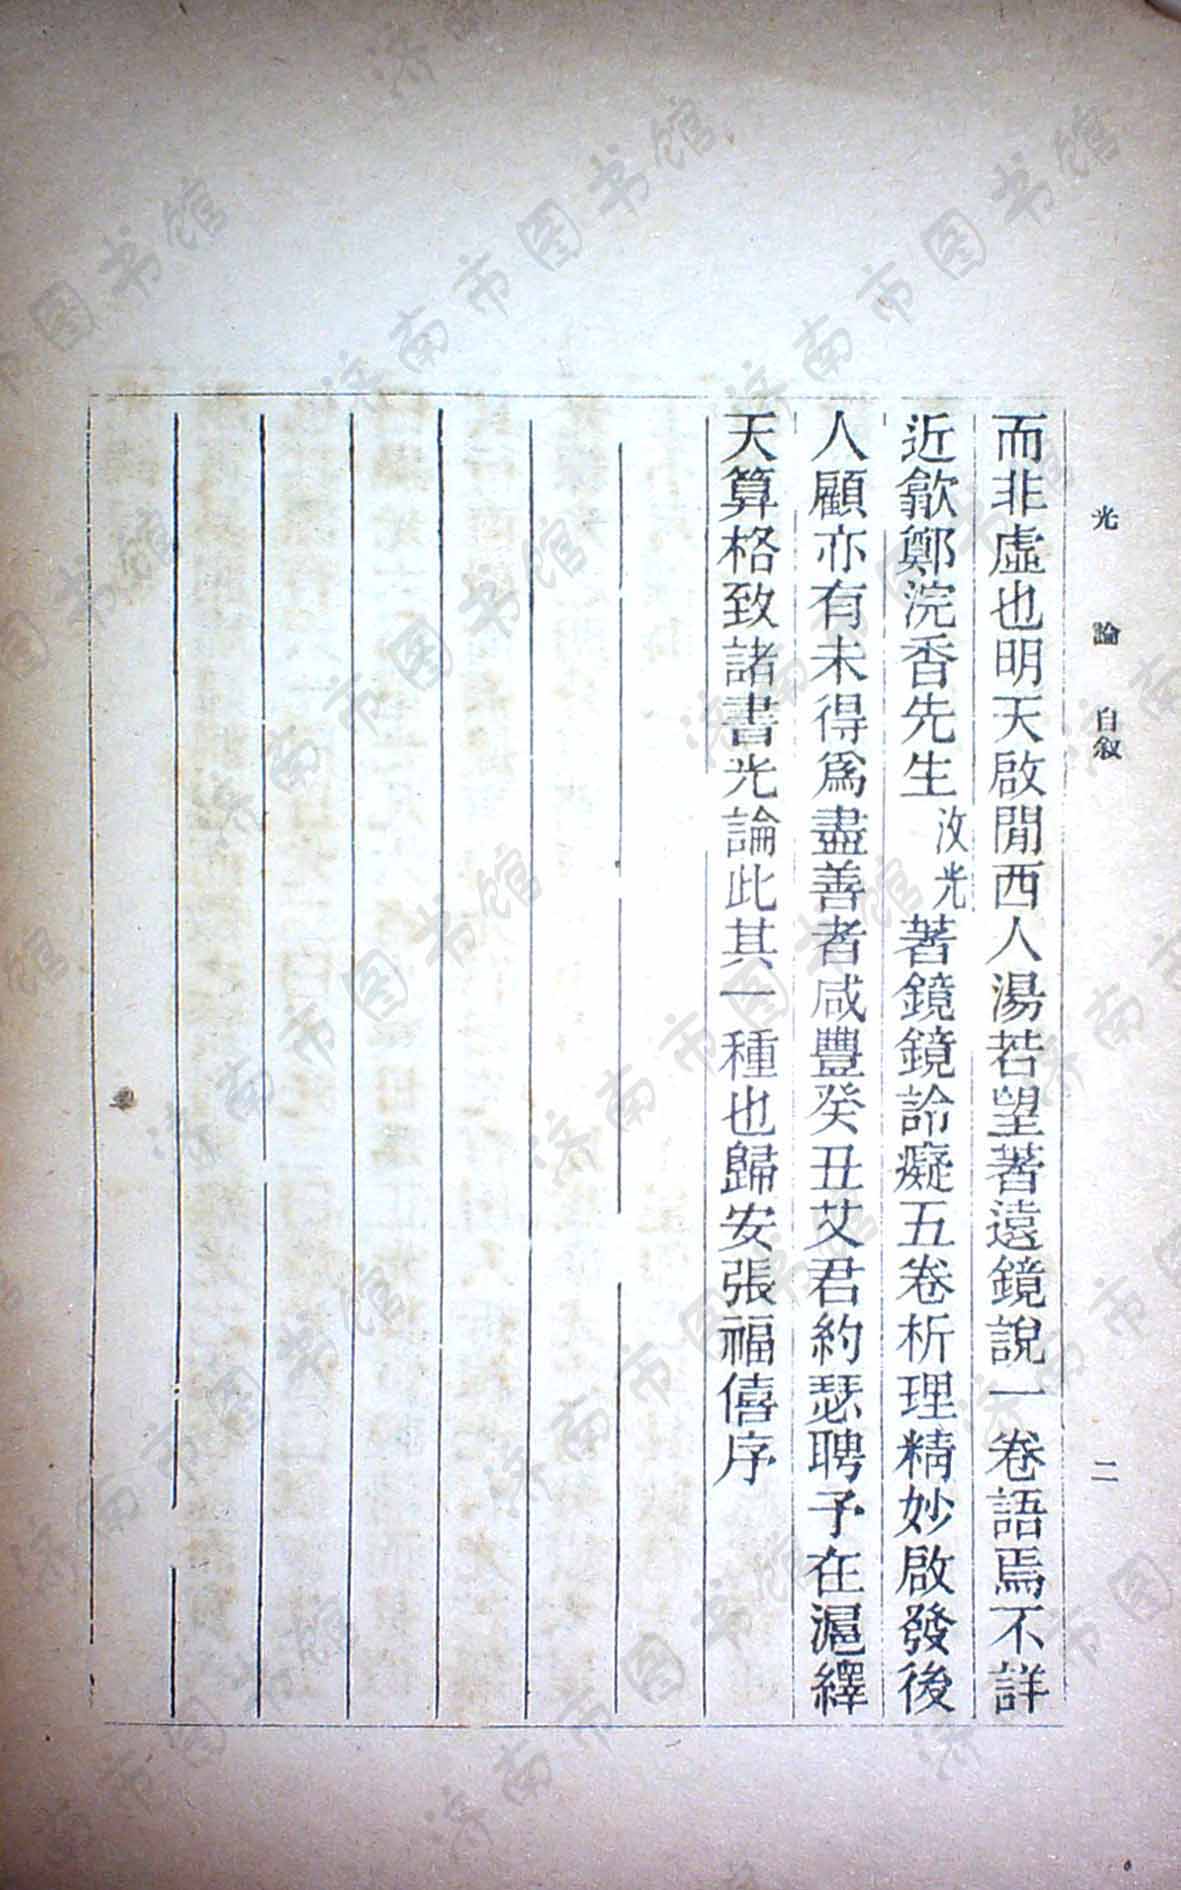 光論 自敘 二
而非虛也明天啟閒西人湯若望著遠鏡說一卷語焉不詳
近歙鄭浣香先生汝光著鏡鏡詅癡五卷析理精妙啟發後
人顧亦有未得爲盡善者咸豐癸丑艾君約瑟聘予在滬繹
天算格致諸書光論此其一種也歸安張福僖序
济南市图书馆